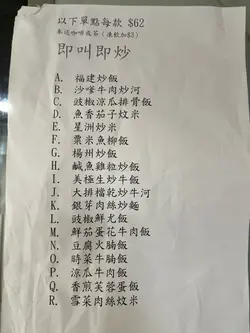 以下單點每款 $62
奉送咖啡或茶(凍飲加$3)
即叫即炒
A. 福建炒飯
B. 沙嗲牛肉炒河
C. 豉椒涼瓜排骨飯
D. 魚香茄子炆米
E. 星洲炒米
F. 粟米魚柳飯
G. 楊州炒飯
H. 鹹魚雞粒炒飯
I. 美極生炒牛飯
J. 大排檔乾炒牛河
K. 銀芽肉絲炒麵
L. 豉椒鮮尤飯
M. 鮮茄蛋花牛肉飯
N. 豆腐火腩飯
O. 時菜牛腩飯
P. 涼瓜牛肉飯
Q. 香煎芙蓉蛋飯
R. 雪菜肉絲炆米